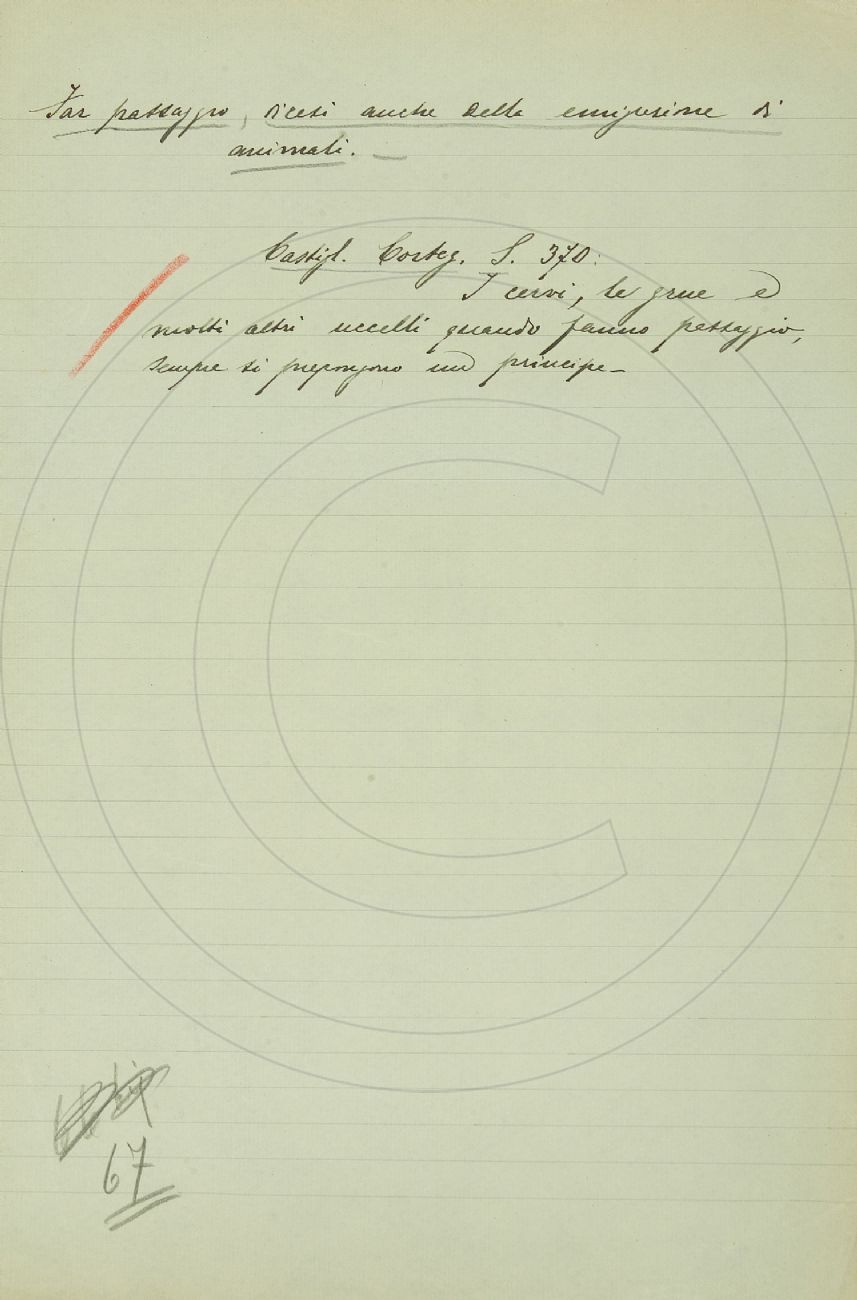 Far passaggio, dicesi anche della emigrazione di
animali. —
Castigl. Corteg. S. 370:
I cervi, le grue e
molti altri uccelli quando fanno passaggio,
sempre si prepongono un principe_
67